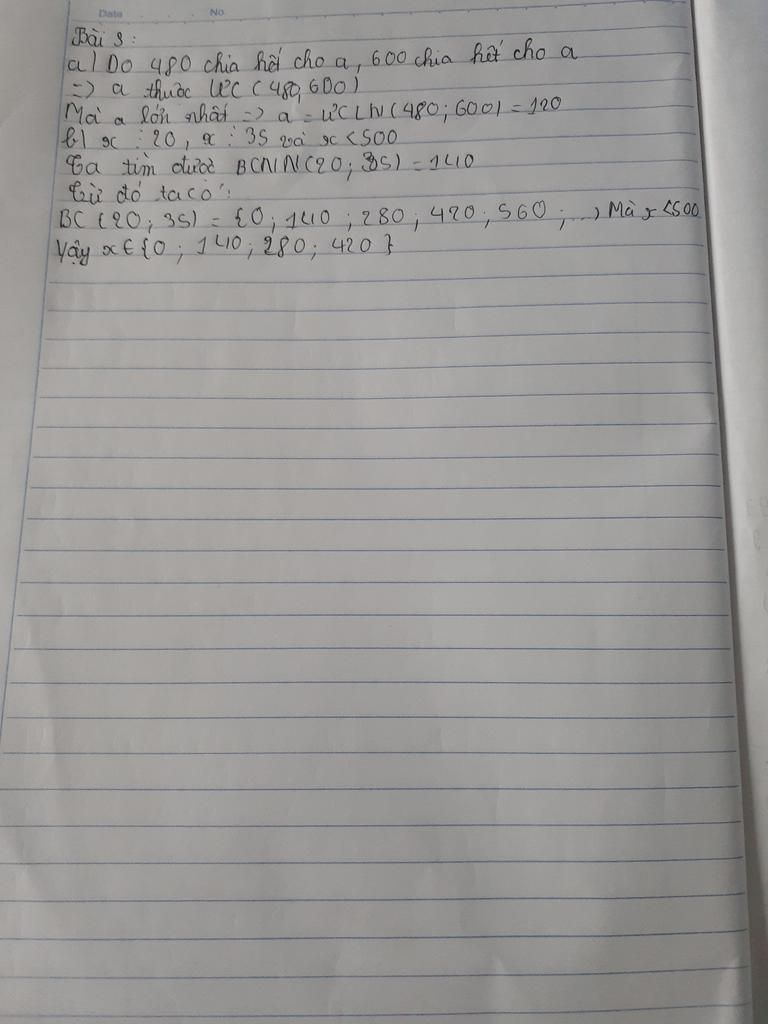 Date No
Bài 3:
a) Do 480 chia hết cho a, 600 chia hết cho a
=> a thuộc ƯC (480,600)
Mà a lớn nhất => a = ƯCLN(480; 600) = 120
b) x ⋮ 20, x ⋮ 35 và x < 500
Ta tìm được BCNN(20; 35) = 140
Từ đó ta có:
BC (20; 35) = {0; 140; 280; 420; 560; ...) Mà x < 500
Vậy x ∈ {0; 140; 280; 420}